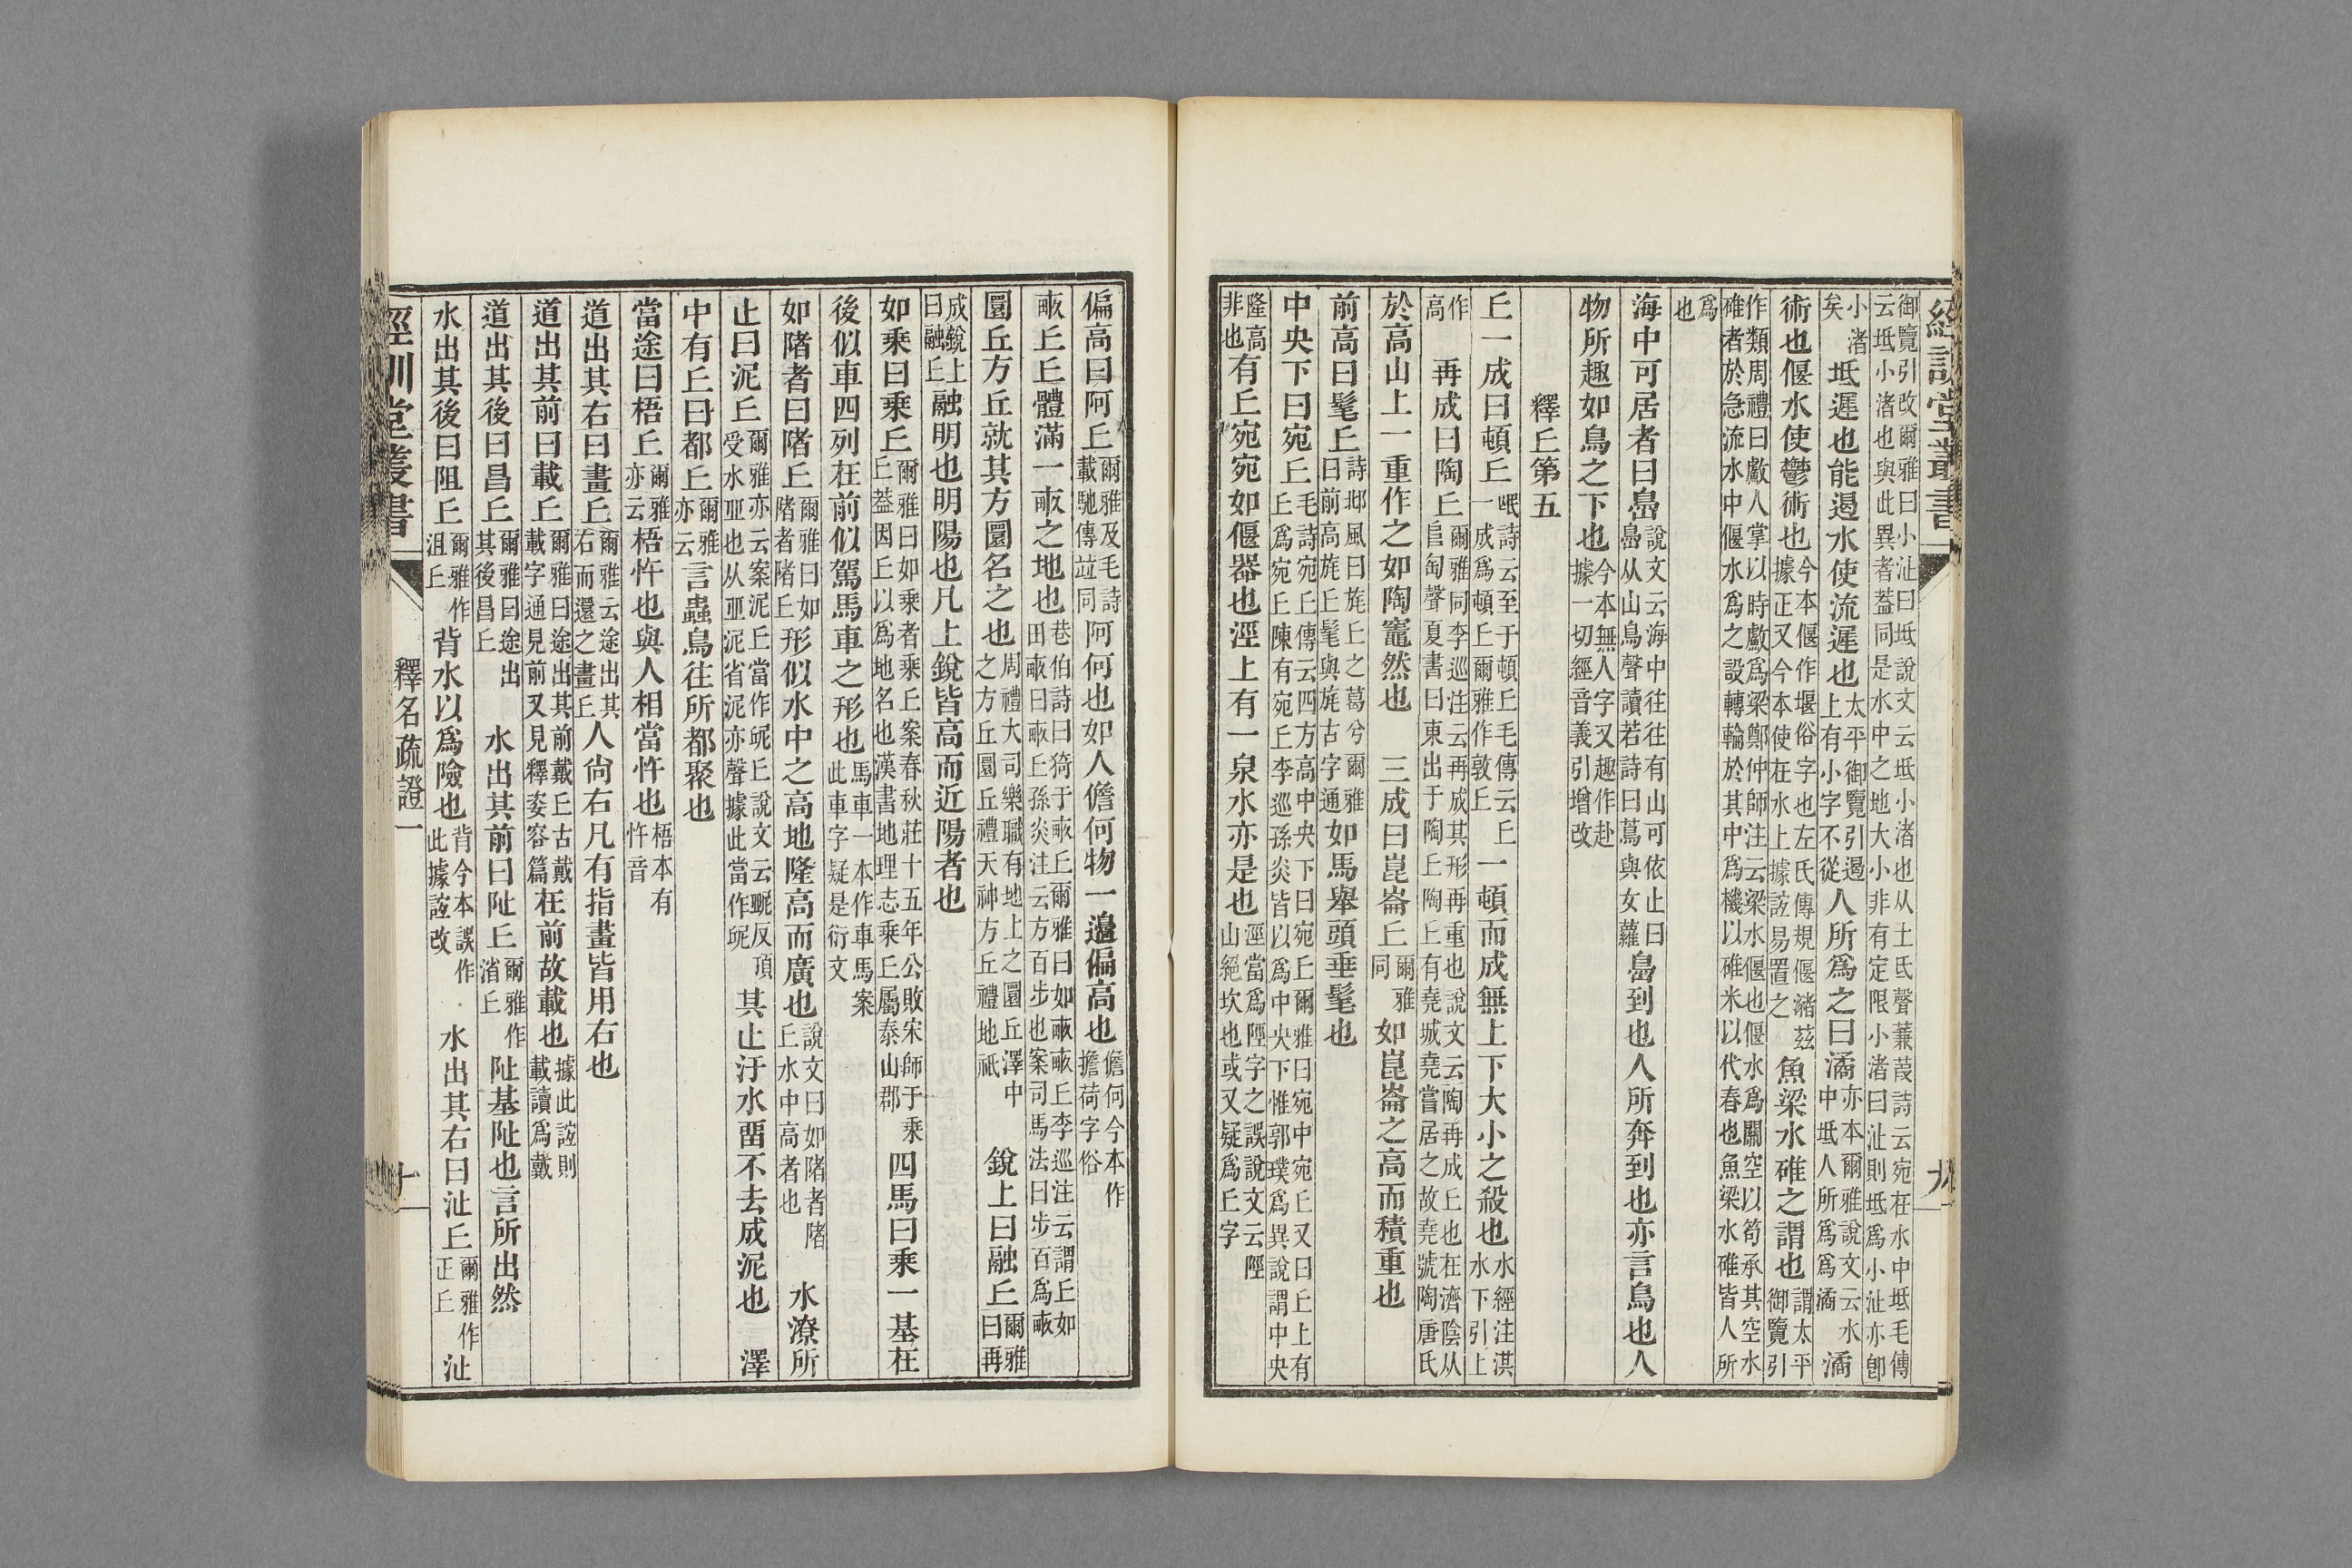 經訓堂叢書　九
御覽引改爾雅曰小沚曰坻說文云坻小渚也从土氐聲蒹葭詩云宛在水中坻毛傳
云坻小渚也與此異者葢同是水中之地大小非有定限小渚曰沚則坻爲小沚亦卽
小渚矣坻遲也能遏水使流遲也太平御覽引遏上有小字不從人所爲之曰潏亦本爾雅說文云水中坻人所爲爲潏潏
術也偃水使鬱術也今本偃作堰俗字也左氏傳規偃瀦茲據正又今本使在水上據誼易置之魚梁水碓之謂也謂太平御覽引
作類周禮曰䱷人掌以時䱷爲梁鄭仲師注云梁水偃也偃水爲關空以笱承其空水
碓者於急流水中偃水爲之設轉輪於其中爲機以碓米以代舂也魚梁水碓皆人所
爲也
海中可居者曰㠀說文云海中往往有山可依止曰㠀从山鳥聲讀若詩曰蔦與女蘿㠀到也人所奔到也亦言鳥也人
物所趣如鳥之下也今本無人字又趣作赴據一切經音義引增改
釋丘第五
丘一成曰頓丘㞾詩云至于頓丘毛傳云丘一成爲頓丘爾雅作敦丘一頓而成無上下大小之殺也水經注淇水下引上
作高再成曰陶丘爾雅同李巡注云再成其形再重也說文云陶再成丘也在濟陰从𨸏匋聲夏書曰東出于陶丘陶丘有堯城堯嘗居之故堯號陶唐氏
於高山上一重作之如陶竈然也　三成曰崑崙丘爾雅同如崑崙之高而積重也
前高曰髦丘詩邶風曰旄丘之葛兮爾雅曰前高旄丘髦與旄古字通如馬舉頭垂髦也
中央下曰宛丘毛詩宛丘傳云四方高中央下曰宛丘爾雅曰宛中宛丘又曰丘上有丘爲宛丘陳有宛丘李巡孫炎皆以爲中央下惟郭璞爲異說謂中央
隆高非也有丘宛宛如偃器也涇上有一泉水亦是也涇當爲陘字之誤說文云陘山絕坎也或又疑爲丘字
偏高曰阿丘爾雅及毛詩載馳傳竝同阿何也如人儋何物一邊偏高也儋何今本作擔荷字俗
畝丘丘體滿一畝之地也巷伯詩曰猗于畝丘爾雅曰如畝畝丘李巡注云謂丘如田畝曰畝丘孫炎注云方百步也案司馬法曰步百爲畝
圜丘方丘就其方圜名之也周禮大司樂職有地上之圜丘澤中之方丘圜丘禮天神方丘禮地祇銳上曰融丘爾雅曰再
成銳上曰融丘融明也明陽也凡上銳皆高而近陽者也
如乘曰乘丘爾雅曰如乘者乘丘案春秋莊十五年公敗宋師于乘丘葢因丘以爲地名也漢書地理志乘丘屬泰山郡四馬曰乘一基在
後似車四列在前似駕馬車之形也馬車一本作車馬案此車字疑是衍文
如陼者曰陼丘爾雅曰如陼者陼丘形似水中之高地隆高而廣也說文曰如陼者陼丘水中高者也水潦所
止曰泥丘爾雅亦云案泥丘當作𡰥丘說文云𡰥反頂受水丘也从丘泥省泥亦聲據此當作𡰥其止汙水畱不去成泥也　澤
中有丘曰都丘爾雅亦云言蟲鳥往所都聚也
當途曰梧丘爾雅亦云梧忤也與人相當忤也梧本有忤音
道出其右曰畫丘爾雅云途出其右而還之畫丘人尙右凡有指畫皆用右也
道出其前曰載丘爾雅曰途出其前戴丘古戴載字通見前又見釋姿容篇在前故載也據此誼則載讀爲戴
道出其後曰昌丘爾雅曰途出其後昌丘水出其前曰阯丘爾雅作渻丘阯基阯也言所出然
水出其後曰阻丘爾雅作沮丘背水以爲險也背今本誤作此據誼改水出其右曰沚丘爾雅作正丘沚
經訓堂叢書　釋名疏證一　十